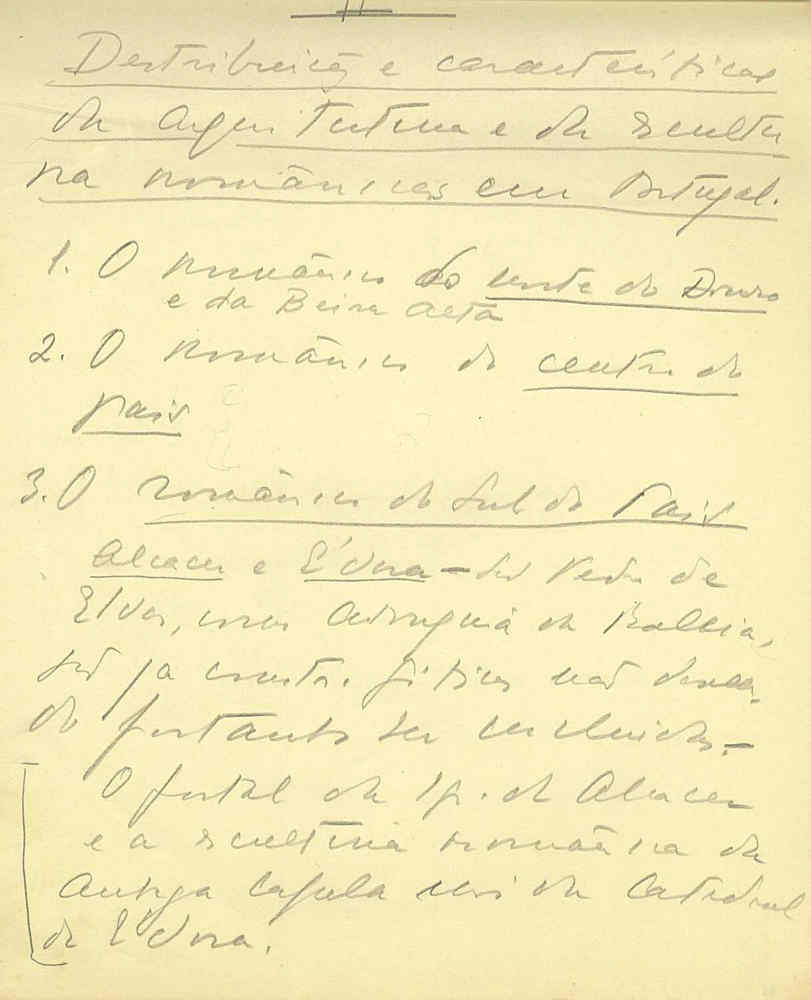 II
Destribuição e características
da Arquitectura e da scultu
ra românicas em Portugal.
1. O românico do norte do Douro
e da Beira Alta
2. O românico do centro do
país
3. O românico do Sul do País
Alcacer e Évora – São Pedro de
Elvas, como Atouguia da Baleia,
são já constr. góticas não deven-
do portanto ser incluidas. –
O portal da Ig. de Alcacer
e a scultura românica da
Antiga Capela mor da Catedral
de Évora.